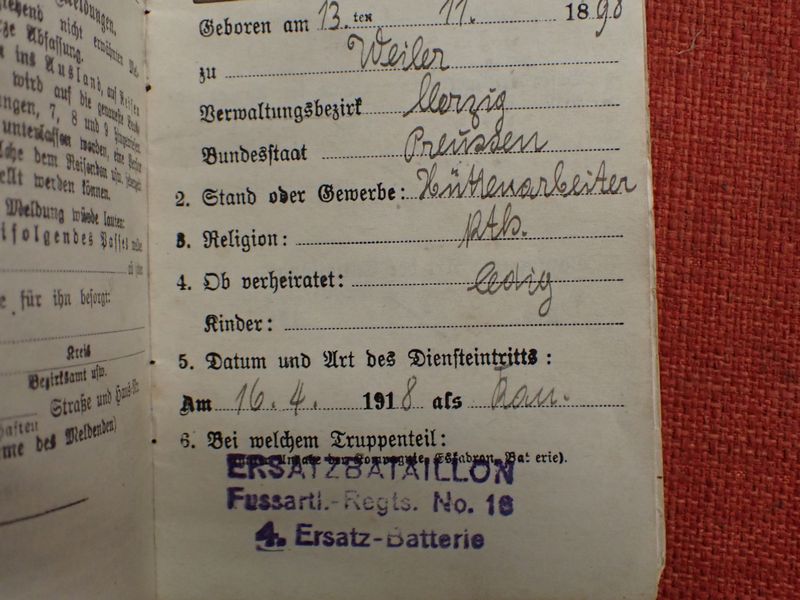 Meldungen.
nicht erwähnten
Abfassung.
ins Ausland, auf Reisen
wird auf die genaueste
7, 8 und 9 hingewiesen.
unterlassen worden, eine
dem Reisenden usw.
werden können.
Meldung würde lauten:
Passes
für ihn besorgt:
Kreis
Bezirksamt usw.
Straße und Haus-Nr.
des Meldenden)
Geboren am 13.ten 11. 1898
zu Weiler
Verwaltungsbezirk Merzig
Bundesstaat Preussen
2. Stand oder Gewerbe: Hüttenarbeiter
3. Religion: kth.
4. Ob verheiratet: ledig
Kinder:
5. Datum und Art des Diensteintritts:
Am 16. 4. 1918 als Kan.
6. Bei welchem Truppenteil:
Angabe der Kompagnie, Eskadron, Batterie).
ERSATZBATAILLON
Fussartl.-Regts. No. 18
4. Ersatz-Batterie